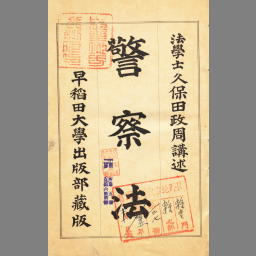 法學士久保田政周講述
警察法
早稻田大學出版部藏版